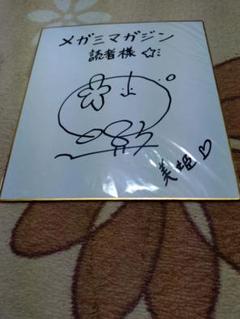 メガミマガジン
読者様
美姫